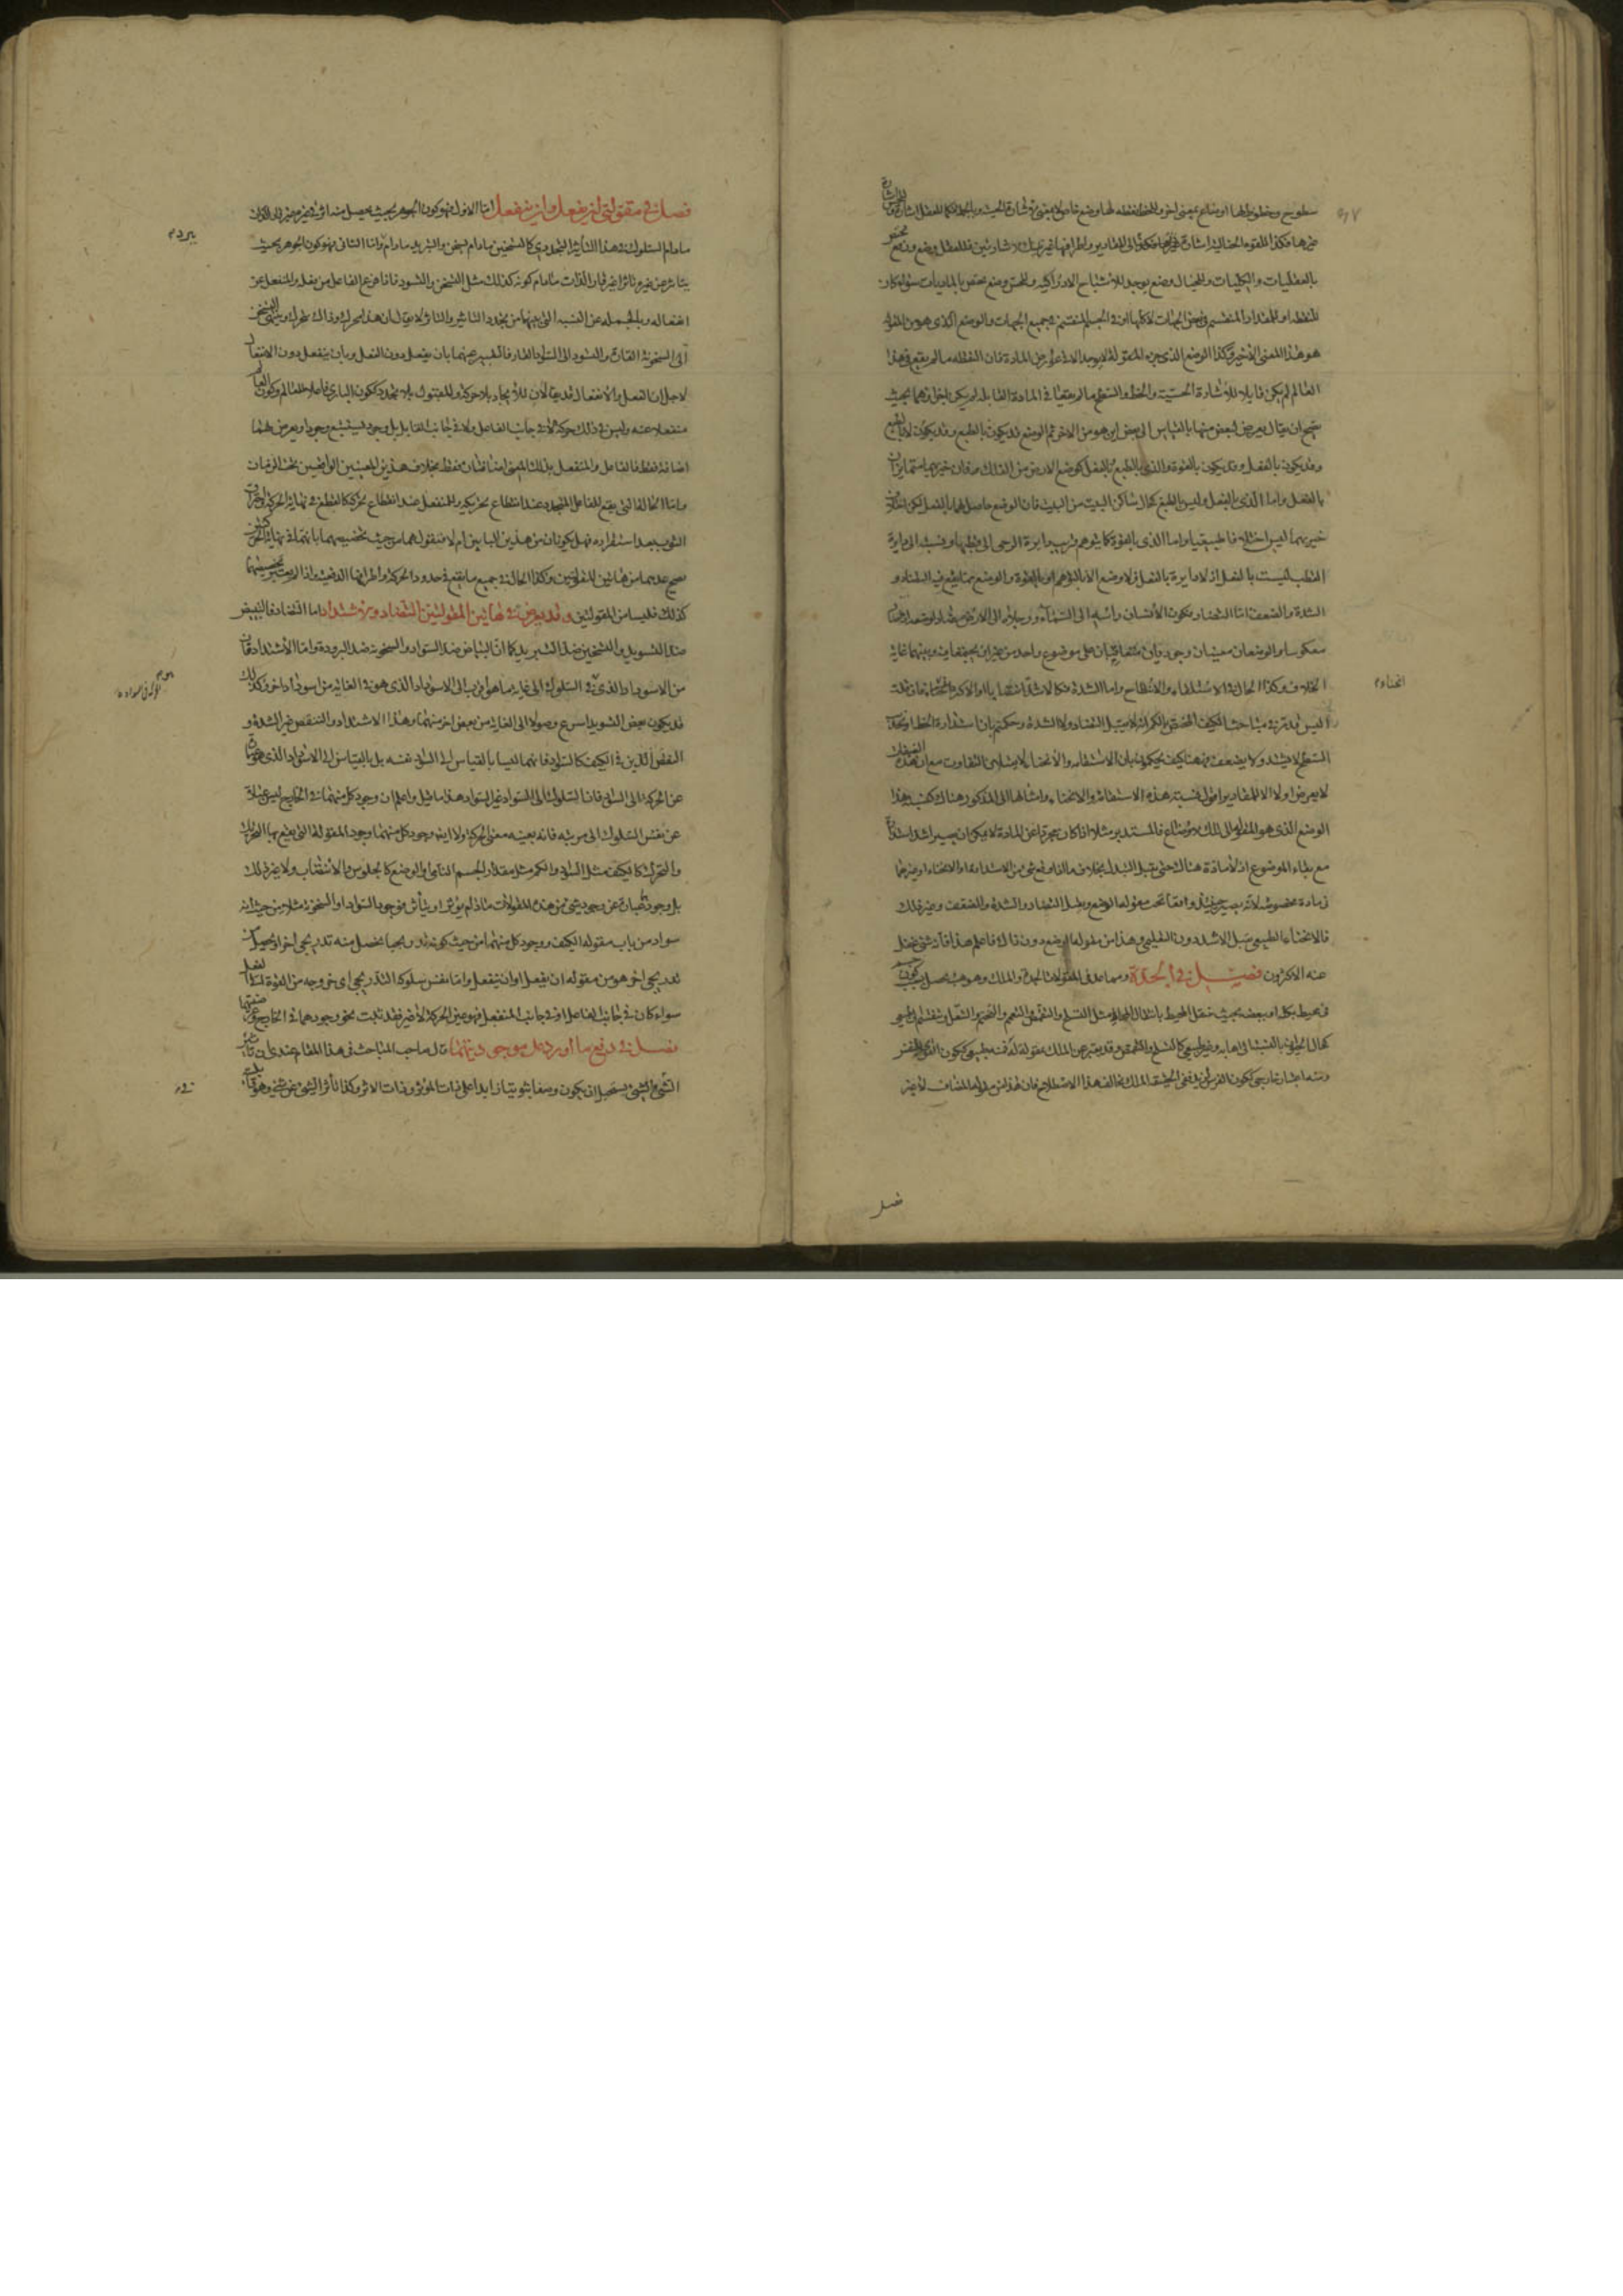 سطوح وخطوط لها اوضاع بمعنى اخر وللخط نقطة لها وضع خاص
بالعقليات والكليات وللخيال وضع يوجد للاشباح الادراكية وللحس وضع مختص بالماديات سواء كان
للنقطة او للمقدار المنقسم في بعض الجهات لا كلها او في الجسم المنقسم في جميع الجهات والوضع الذي هو من المقولة
هو هذا المعنى الاخير وكذا الوضع الذي جزء المقولة لا يوجد الا في المادة فان النقطة ما لم يقع في هذا
العالم لم يكن قابلا للاشارة الحسية والخط والسطح ما لم يقعا في المادة القابلة لم يكن اجزاؤهما بحيث
يصح ان يقال يعرض لبعض منها بالقياس الى بعض اين هو من الاخر ثم الوضع قد يكون بالطبع وقد يكون لا بالطبع
وقد يكون بالفعل وقد يكون بالقوة والذي بالطبع وبالفعل كوضع الارض من الفلك فان حيزيهما متمايزان
بالفعل واما الذي بالفعل وليس بالطبع كحال ساكن البيت من البيت فان الوضع حاصل لهما بالفعل لكن اختلاف
حيزيهما ليس اختلافا طبيعيا واما الذي بالقوة كما يتوهم قرب دايرة الرحى الى قطبها ونسبته الى دايرة
القطب ليست بالفعل اذ لا دايرة بالفعل فلا وضع الا بالتوهم او بالقوة والوضع مما يقع فيه التضاد و
الشدة والضعف اما التضاد فكون الانسان رأسه الى السماء ورجلاه الى الارض مضاد لوضعه اذا كان
معكوسا والوضعان معنيان وجوديان متعاقبان على موضوع واحد من غير ان يجتمعا فيه وبينهما غاية
الخلاف وكذا الحال في الاستلقاء والانبطاح واما الشدة فكالاشد انتصابا او الاكثر انحناء فان قلت
اليس قد مر في مباحث الكيف المختص بالكم انه لا يقبل التضاد ولا الشدة وحكمتم بان استدارة الخط او تحدب
السطح لا يشتد ولا يضعف فههنا كيف يحكمون بان الاستقامة والانحناء لا يقبل التفاوت مع ان هذه
لا يعرض اولا الا للمقادير اقول نسبة هذه الاستقامة والانحناء وامثالها الى المذكور هناك كنسبة هذا
الوضع الذي هو المقولة الى تلك الاوضاع فالمستدير مثلا اذا كان مجردا عن المادة لا يمكن ان يصير اشد استدارة
مع بقاء الموضوع اذ لا مادة هناك حتى يقبل التبدل بخلاف ما اذا وقع شيء من الاستدارة او الانحناء او غيرهما
في مادة مخصوصة لانه يصير حينئذ واقعا تحت مقولة الوضع ويقبل التضاد والشدة والضعف وغير ذلك
فالانحناء الطبيعي يقبل الاشد دون التعليمي وهذا من مقولة الوضع دون ذاك فاعلم هذا فانه شيء غفل
عنه الاكثرون فصل في الجدة ومما عد في المقولات الجدة والملك وهو هيئة تحصل بسبب كون جسم
في محيط بكله او بعضه بحيث ينتقل المحيط بانتقال المحاط مثل التسلح والتقمص والتعمم والتختم والتنعل وينقسم الى طبيعي
كحال الحيوان بالنسبة الى اهابه وغير طبيعي كالتسلح والتقمص وقد يعبر عن الملك بمقولة له فمنه طبيعي ككون القوى للنفس
ومنه اعتبار خارجي ككون الفرس لزيد ففي الحقيقة الملك يخالف هذا الاصطلاح فان هذا من مقولة المضاف لا غير
انحناء م
فصل
فصل في مقولتي ان يفعل وان ينفعل اما الاول فهو كون الجوهر بحيث يحصل منه اثر في غيره غير قار الذات
ما دام السلوك في هذا التأثير التجددي كالتسخين ما دام يسخن والتبريد ما دام واما الثاني فهو كون الجوهر بحيث
يتأثر عن غيره تأثرا غير قار الذات ما دام كونه كذلك مثل التسخن والتسود فاذا فرغ الفاعل من فعله والمنفعل عن
انفعاله وبالجملة عن النسبة التي بينهما من تجدد التأثير والتأثر لا يقال ان هذا محرك وذاك متحرك وينتهي التسخن
الى السخونة القارة والتسود الى السواد القار فالتعبير عنهما بان يفعل دون الفعل وبان ينفعل دون الانفعال
لاجل ان الفعل والانفعال قد يقالان للايجاد بلا حركة وللقبول بلا تجدد ككون الباري فاعلا للعالم وكون العالم
منفعلا عنه وليس في ذلك حركة لا في جانب الفاعل ولا في جانب القابل بل وجود يستتبع وجودا ويعرض لهما
اضافة فقط فالفاعل والمنفعل بذلك المعنى اضافتان فقط بخلاف هذين المعنيين الواقعين تحت الزمان
واما الحالة التي يقع للفاعل المتجدد عند انقطاع تحريكه وللمنفعل عند انقطاع تحركه كالقطع في نهاية الحركة واحتراق
الثوب بعد استقراره فهل يكونان من هذين البابين ام لا فنقول هما من حيث تخصيصهما بانهما في نهاية الحركتين
يصح عدهما من هاتين المقولتين وكذا الحال في جميع ما يقع في حدود الحركة واطرافها الدفعية واذا لم يعتبر تخصيصهما
كذلك فليسا من المقولتين وقد يعرض في هاتين المقولتين التضاد والاشتداد اما التضاد فالتبييض
ضد التسويد والتسخين ضد التبريد كما ان البياض ضد السواد والسخونة ضد البرودة واما الاشتداد فان
من الاسوداد الذي في السلوك الى غاية ما هو اقرب الى الاسوداد الذي هو في الغاية من اسوداد اخر وكذلك
قد يكون بعض التسويد اسرع وصولا الى الغاية من بعض اخر منهما وهذا الاشتداد والتنقص غير الشدة و
النقص الذين في الكيف كالسواد فانهما ليسا بالقياس الى السواد نفسه بل بالقياس الى الاسوداد الذي هو عبارة
عن الحركة الى السواد فان السلوك الى السواد غير السواد هذا ما قيل واعلم ان وجود كل منهما في الخارج ليس عبارة
عن نفس السلوك الى مرتبة فانه بعينه معنى الحركة ولا ايضا وجود كل منهما وجود المقولة التي يقع بها التحريك
والتحرك كالكيف مثل السواد والكم مثل مقدار الجسم النامي والوضع كالجلوس والانتصاب ولا غير ذلك
بل وجودهما عبارة عن وجود شيء من هذه المقولات ما دام يؤثر او يتأثر فوجود السواد او السخونة مثلا من حيث انه
سواد من باب مقولة الكيف ووجود كل منهما من حيث كونه تدريجيا يحصل منه تدريجي اخر او يحصل من
تدريجي اخر هو من مقولة ان يفعل او ان ينفعل واما نفس سلوكه التدريجي اي خروجه من القوة الى الفعل
سواء كان في جانب الفاعل او في جانب المنفعل فهو عين الحركة لا غير فقد ثبت نحو وجودهما في الخارج وعرضيتهما
فصل في دفع ما اورد على وجودهما قال صاحب المباحث في هذا المقام عندي ان تأثير
الشيء في الشيء يستحيل ان يكون وصفا ثبوتيا زايدا على ذات المؤثر وذات الاثر وكذا تأثر الشيء عن شيء وهو قبول
يبرد م